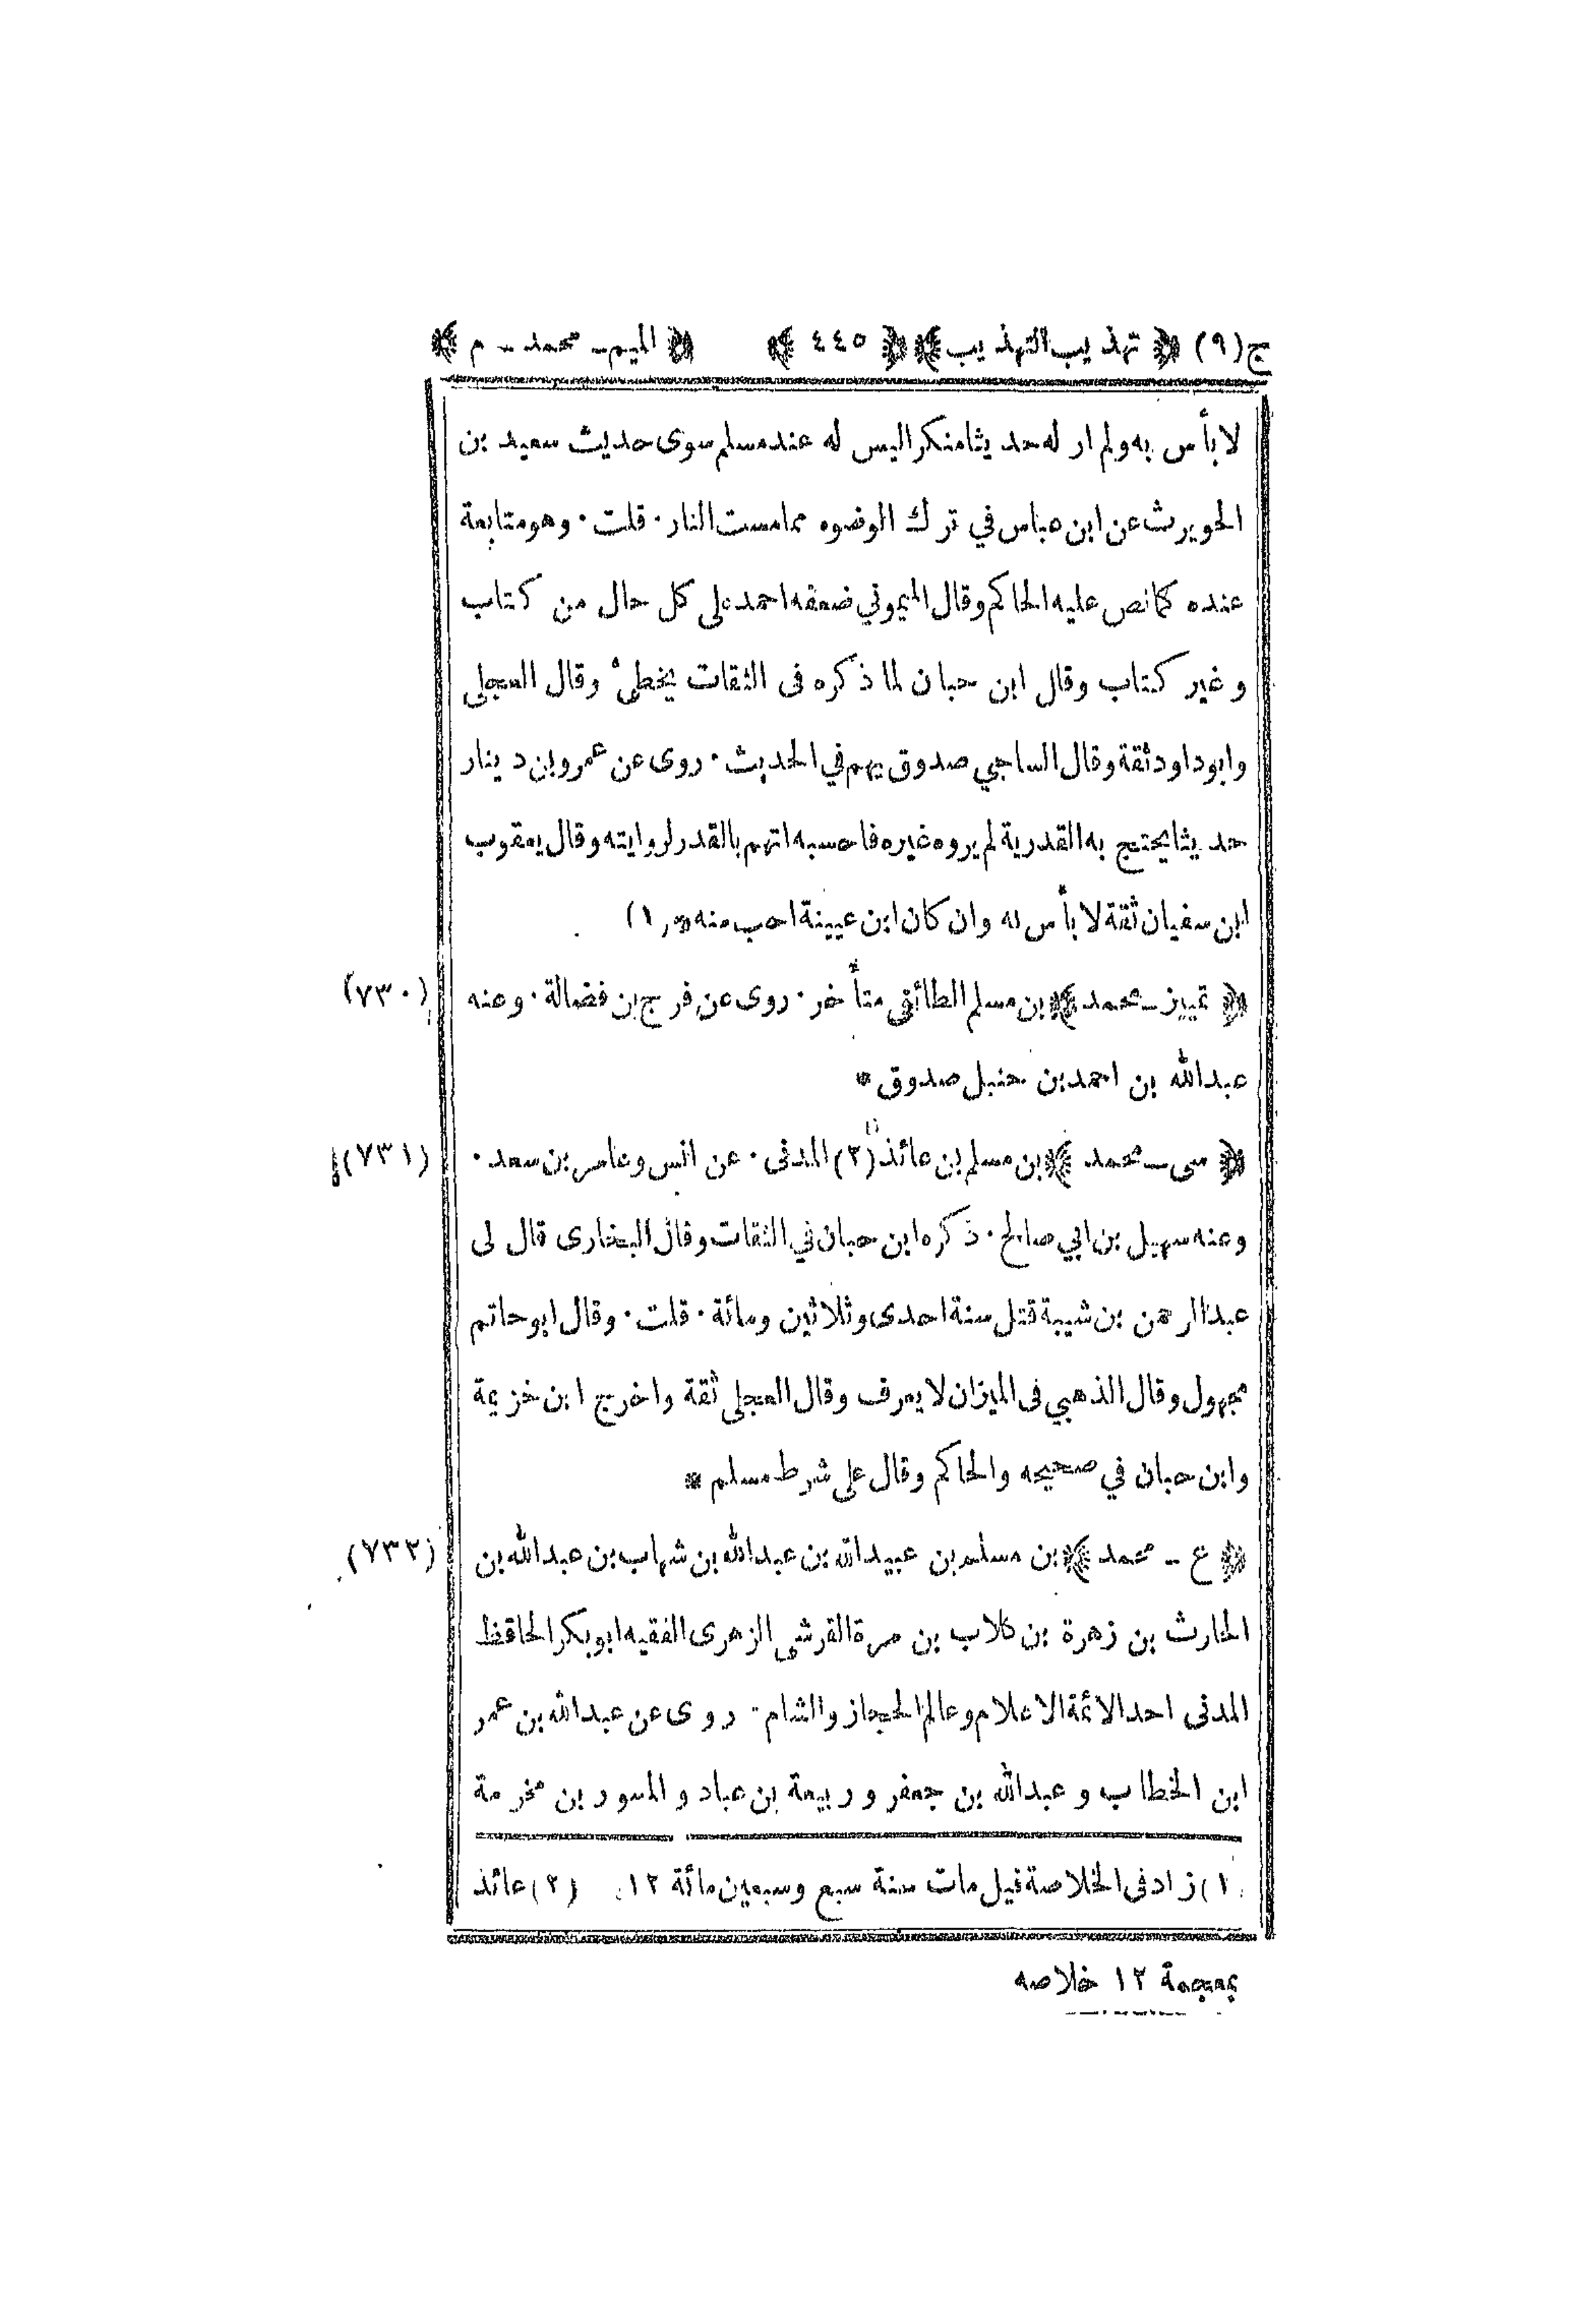 ج(٩) ﴿ تهذيب التهذيب ﴾ ﴿ ٤٤٥ ﴾ ﴿ الميم - محمد - م ﴾
لا بأس به ولم ار له حديثا منكرا ليس له عند مسلم سوى حديث سعيد بن
الحويرث عن ابن عباس في ترك الوضوء ممامست النار · قلت · وهو متابعة
عنده كما نص عليه الحاكم وقال الميموني ضعفه احمد على كل حال من كتاب
و غير كتاب وقال ابن حبان لما ذكره فى الثقات يخطئ وقال العجلى
وابو داود ثقة وقال الساجي صدوق يهم في الحديث · روى عن عمرو بن دينار
حديثا يحتج به القدرية لم يروه غيره فاحسبه اتهم بالقدر لروايته وقال يعقوب
ابن سفيان ثقة لا بأس به وان كان ابن عيينة احب منه * (١)
﴿ تمييز - محمد ﴾ بن مسلم الطائفى متأخر · روى عن فرج بن فضالة · وعنه (٧٣٠)
عبدالله بن احمد بن حنبل صدوق *
﴿ سى - محمد ﴾ بن مسلم بن عائذ (٢) المدنى · عن انس وعامر بن سعد · (٧٣١)
وعنه سهيل بن ابي صالح · ذكره ابن حبان في الثقات وقال البخارى قال لى
عبدالرحمن بن شيبة قتل سنة احدى وثلاثين ومائة · قلت · وقال ابو حاتم
مجهول وقال الذهبي فى الميزان لا يعرف وقال العجلى ثقة واخرج ابن خزيمة
وابن حبان في صحيحه والحاكم وقال على شرط مسلم *
﴿ ع - محمد ﴾ بن مسلم بن عبيدالله بن عبدالله بن شهاب بن عبدالله بن (٧٣٢)
الحارث بن زهرة بن كلاب بن مرة القرشى الزهرى الفقيه ابو بكر الحافظ
المدنى احد الائمة الاعلام وعالم الحجاز والشام · روى عن عبدالله بن عمر
ابن الخطاب و عبدالله بن جعفر و ربيعة بن عباد و المسور بن مخرمة
(١) زاد فى الخلاصة قيل مات سنة سبع وسبعين مائة ١٢ (٢) عائذ
بمعجمة ١٢ خلاصه